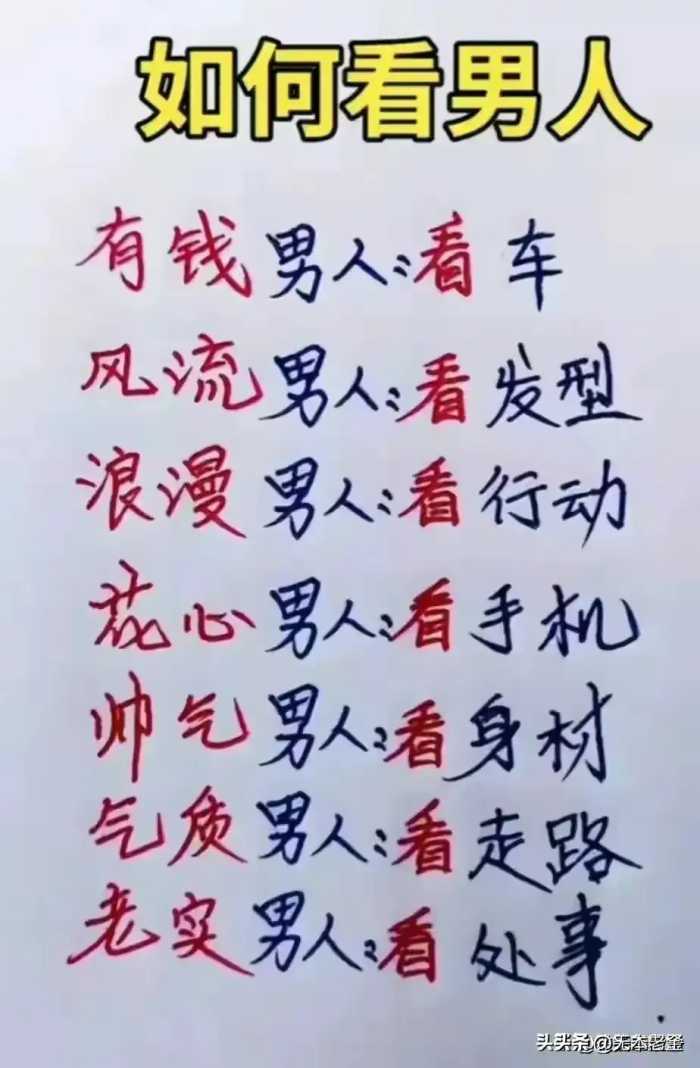 如何看男人
有钱男人:看车
风流男人:看发型
浪漫男人:看行动
花心男人:看手机
帅气男人:看身材
气质男人:看走路
老实男人:看处事
头头条@